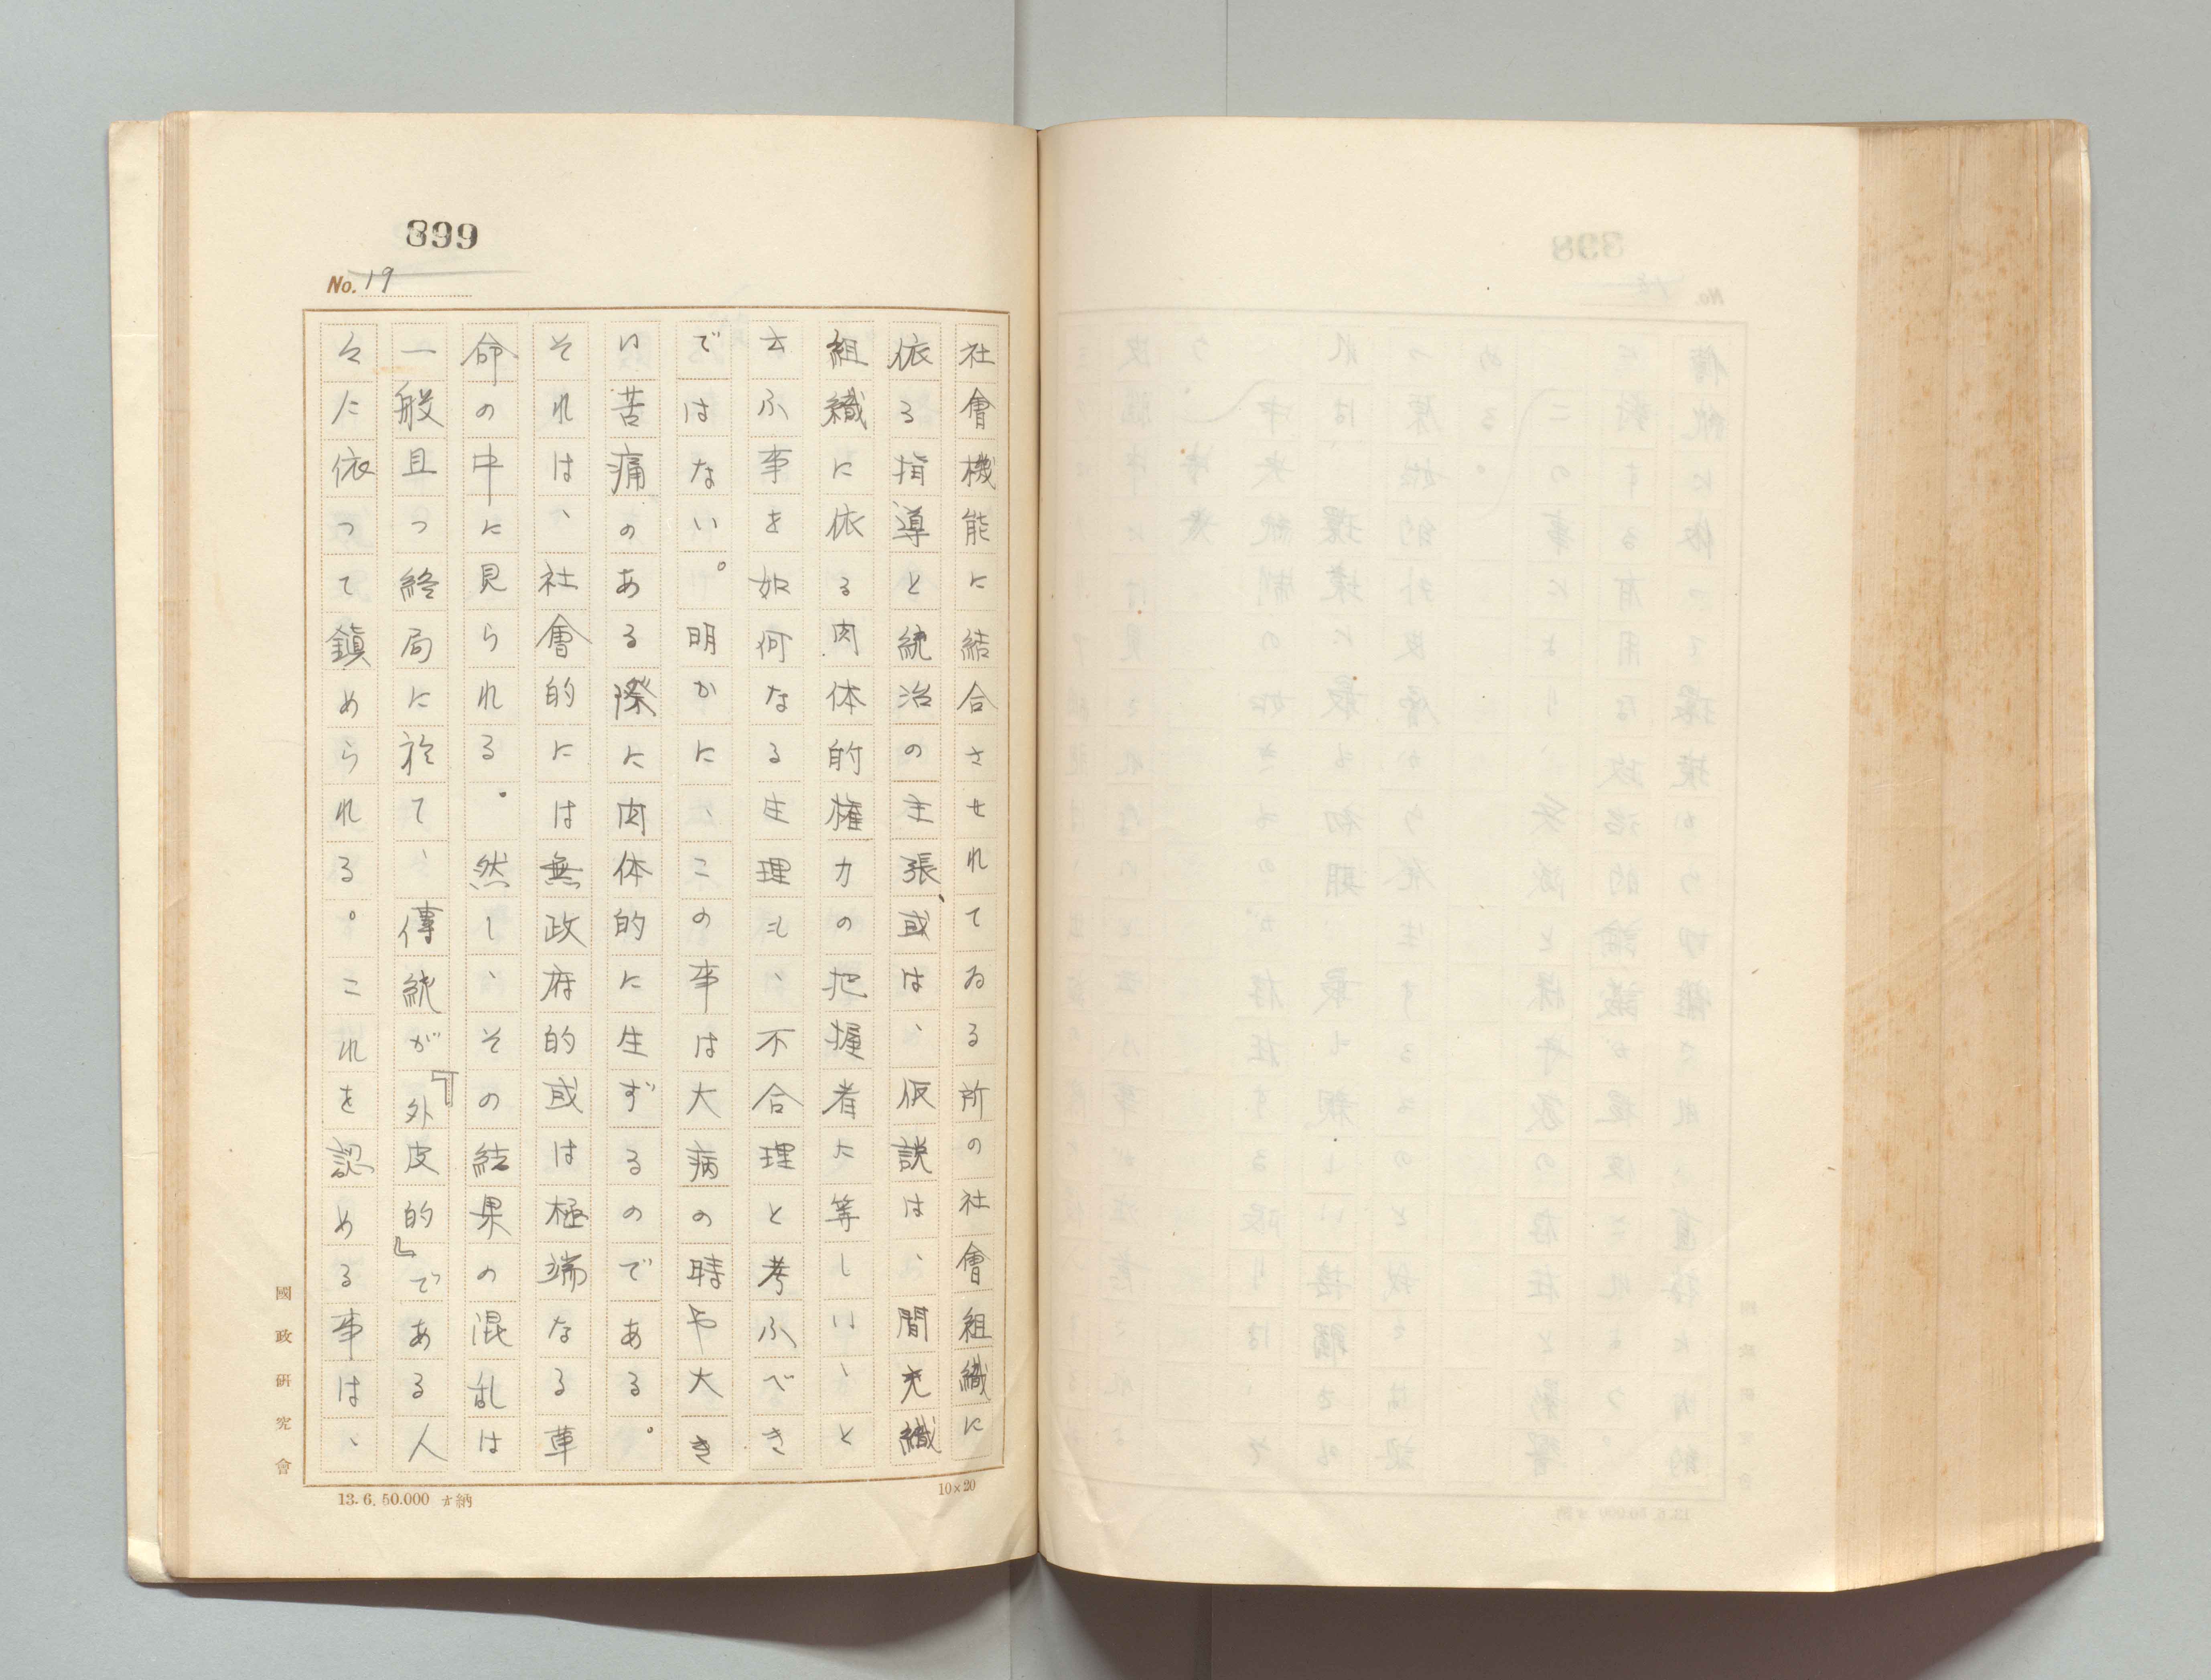 399
No. 19
社會機能に結合させれてゐる所の社會組織に
依る指導と統治の主張、或は、仮説は、間充織
組織に依る肉体的権力の把握者に等しい、と
云ふ事を如何なる生理も、不合理と考ふべき
ではない。明かに、この事は大病の時や大き
い苦痛のある際に肉体的に生ずるのである。
それは、社會的には無政府的或は極端なる革
命の中に見られる。然し、その結果の混乱は
一般且つ終局に於て、傳統が『外皮的』である人
々に依って鎮められる。これを認める事は、
國政研究會
13. 6. 50.000 ㋔納
10×20